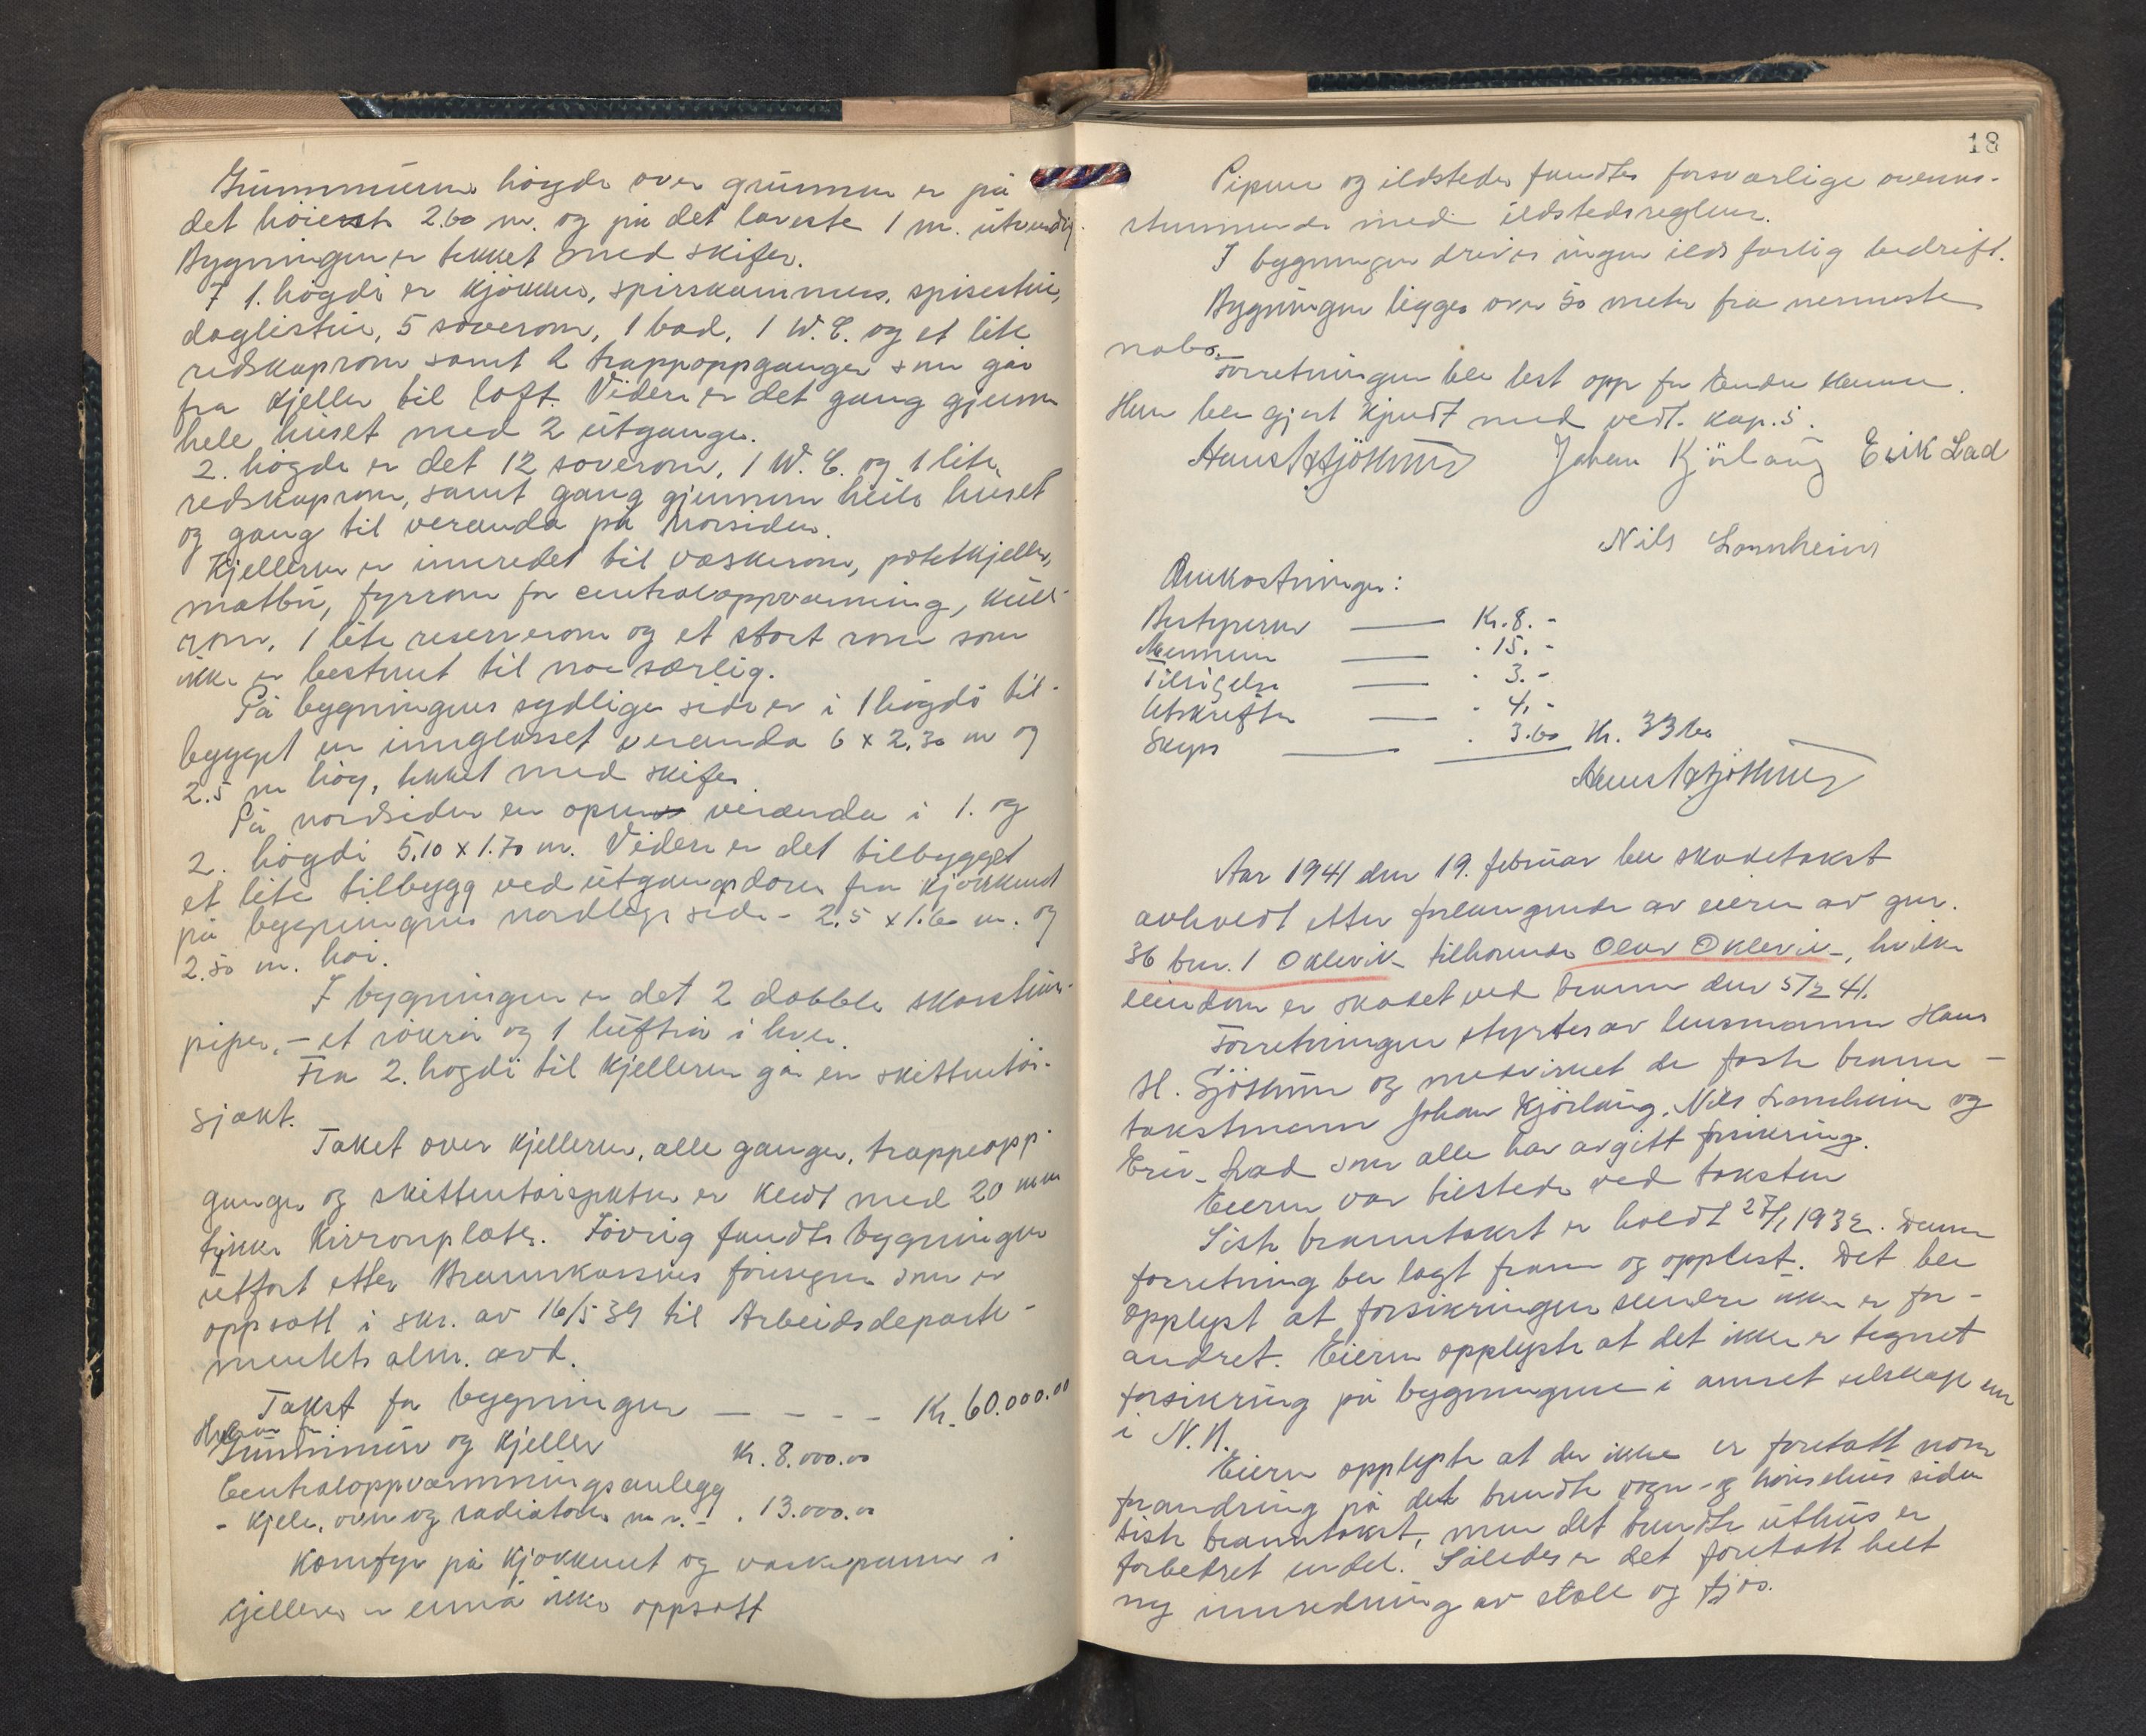 Grunnmurens høgde over grunnen er på
det høieste 2.60 m. og på det laveste 1 m. utvendig.
Bygningen er tekket med skifer.
I 1. høgdi er kjøkken, spiskammers, spisestue,
daglistue, 5 soverom, 1 bad, 1 W.C. og et lite
redskaprom samt 2 trappoppganger som går
fra kjeller til loft. Videre er det gang gjennom
hele huset med 2 utganger.
2. høgde er det 12 soverom, 1 W.C. og 1 lite
redskaprom, samt gang gjennom heile huset
og gang til veranda på norsiden.
Kjelleren er innredet til vaskerom, potetkjeller,
matbu, fyrrom for centraloppvarming, kull-
rom, 1 lite reserverom og et stort rom som
ikke er bestemt til noe særlig.
På bygningens sydlige side er i 1 høgdi til-
bygget en innglasset veranda 6 x 2,30 m og
2.5 m høg, tekket med skifer
På nordsiden en open veranda i 1. og
2. høgdi 5,10 x 1.70 m. Videre er det tilbygget
et lite tilbygg ved utgangsdøren fra kjøkkenet
på bygningens nordlige side - 2,5 x 1.60 m. og
2.50 m. høi.
I bygningen er det 2 dobble skorsteins-
piper, - et røkrør og 1 luftrør i hver.
Fra 2. høgdi til kjelleren går en skittentøi-
sjakt.
Taket over kjelleren, alle ganger, trappeopp-
ganger og skittentøisjakten er kledt med 20 mm
tykke plater. Forøvrig fandtes bygningen
utført etter Brannkassens foresegner som er
oppsatt i skr. av 16/5 39 til Arbeidsdeparte-
mentets alm. avd.
Takst for bygningen - - - - Kr. 60.000.00
Herav for
Grunnmur og kjeller Kr. 8.000.00
Centraloppvarmningsanlegg
- kjele, ovn og radiatorer m.v. - . 13.000.00
Komfyr på kjøkkenet og vaskepanne i
kjelleren er ennå ikke oppsatt
18
Pipene og ildsteder fundtes forsvarlige overens-
stemmende med ildstedsreglene.
I bygningen drives ingen ildsfarlig bedrift.
Bygningen ligger over 50 meter fra nermeste
nabo.
Forretningen ble lest opp for
Hun ble gjort kjendt med vedt. kap. 5.
Hans H Sjøthun Johan Kjørlaug Erik Lad
Nils Lannheim
Omkostninger:
Bestyreren — Kr. 8. -
Mennene — " 15. -
Tilsigelse — " 3. -
Utskrifter — " 4, -
Skyss — " 3.60 Kr. 33 60
Hans H Sjøthun
Aar 1941 den 19. februar ble skadetakst
avholdt etter forlangende av eieren av gnr.
36 bnr. 1 Oklevik tilhørende Olav Oklevik, hvilken
eiendom er skadet ved brann den 5/2 41.
Forretningen styrtes av lensmannen Hans
H. Sjøthun og medvirket de faste brann-
takstmenn Johan Kjørlaug, Nils Lannheim og
Erik Lad som alle har avgitt forsikring.
Eieren var tilstede ved taksten
Siste branntakst er holdt 27/1 1932. Denne
forretning ble lagt fram og opplest. Det ble
opplyst at forsikringen senere ikke er for-
andret. Eieren opplyste at det ikke er tegnet
forsikring på bygningene i annet selskap enn
i N.N.
Eieren opplyste at der ikke er foretatt noen
forandring på det brendte vogn- og hønsehus siden
siste branntakst, men det brendte uthus er
forbedret endel. Således er det foretatt helt
ny innredning av stall og fjøs.